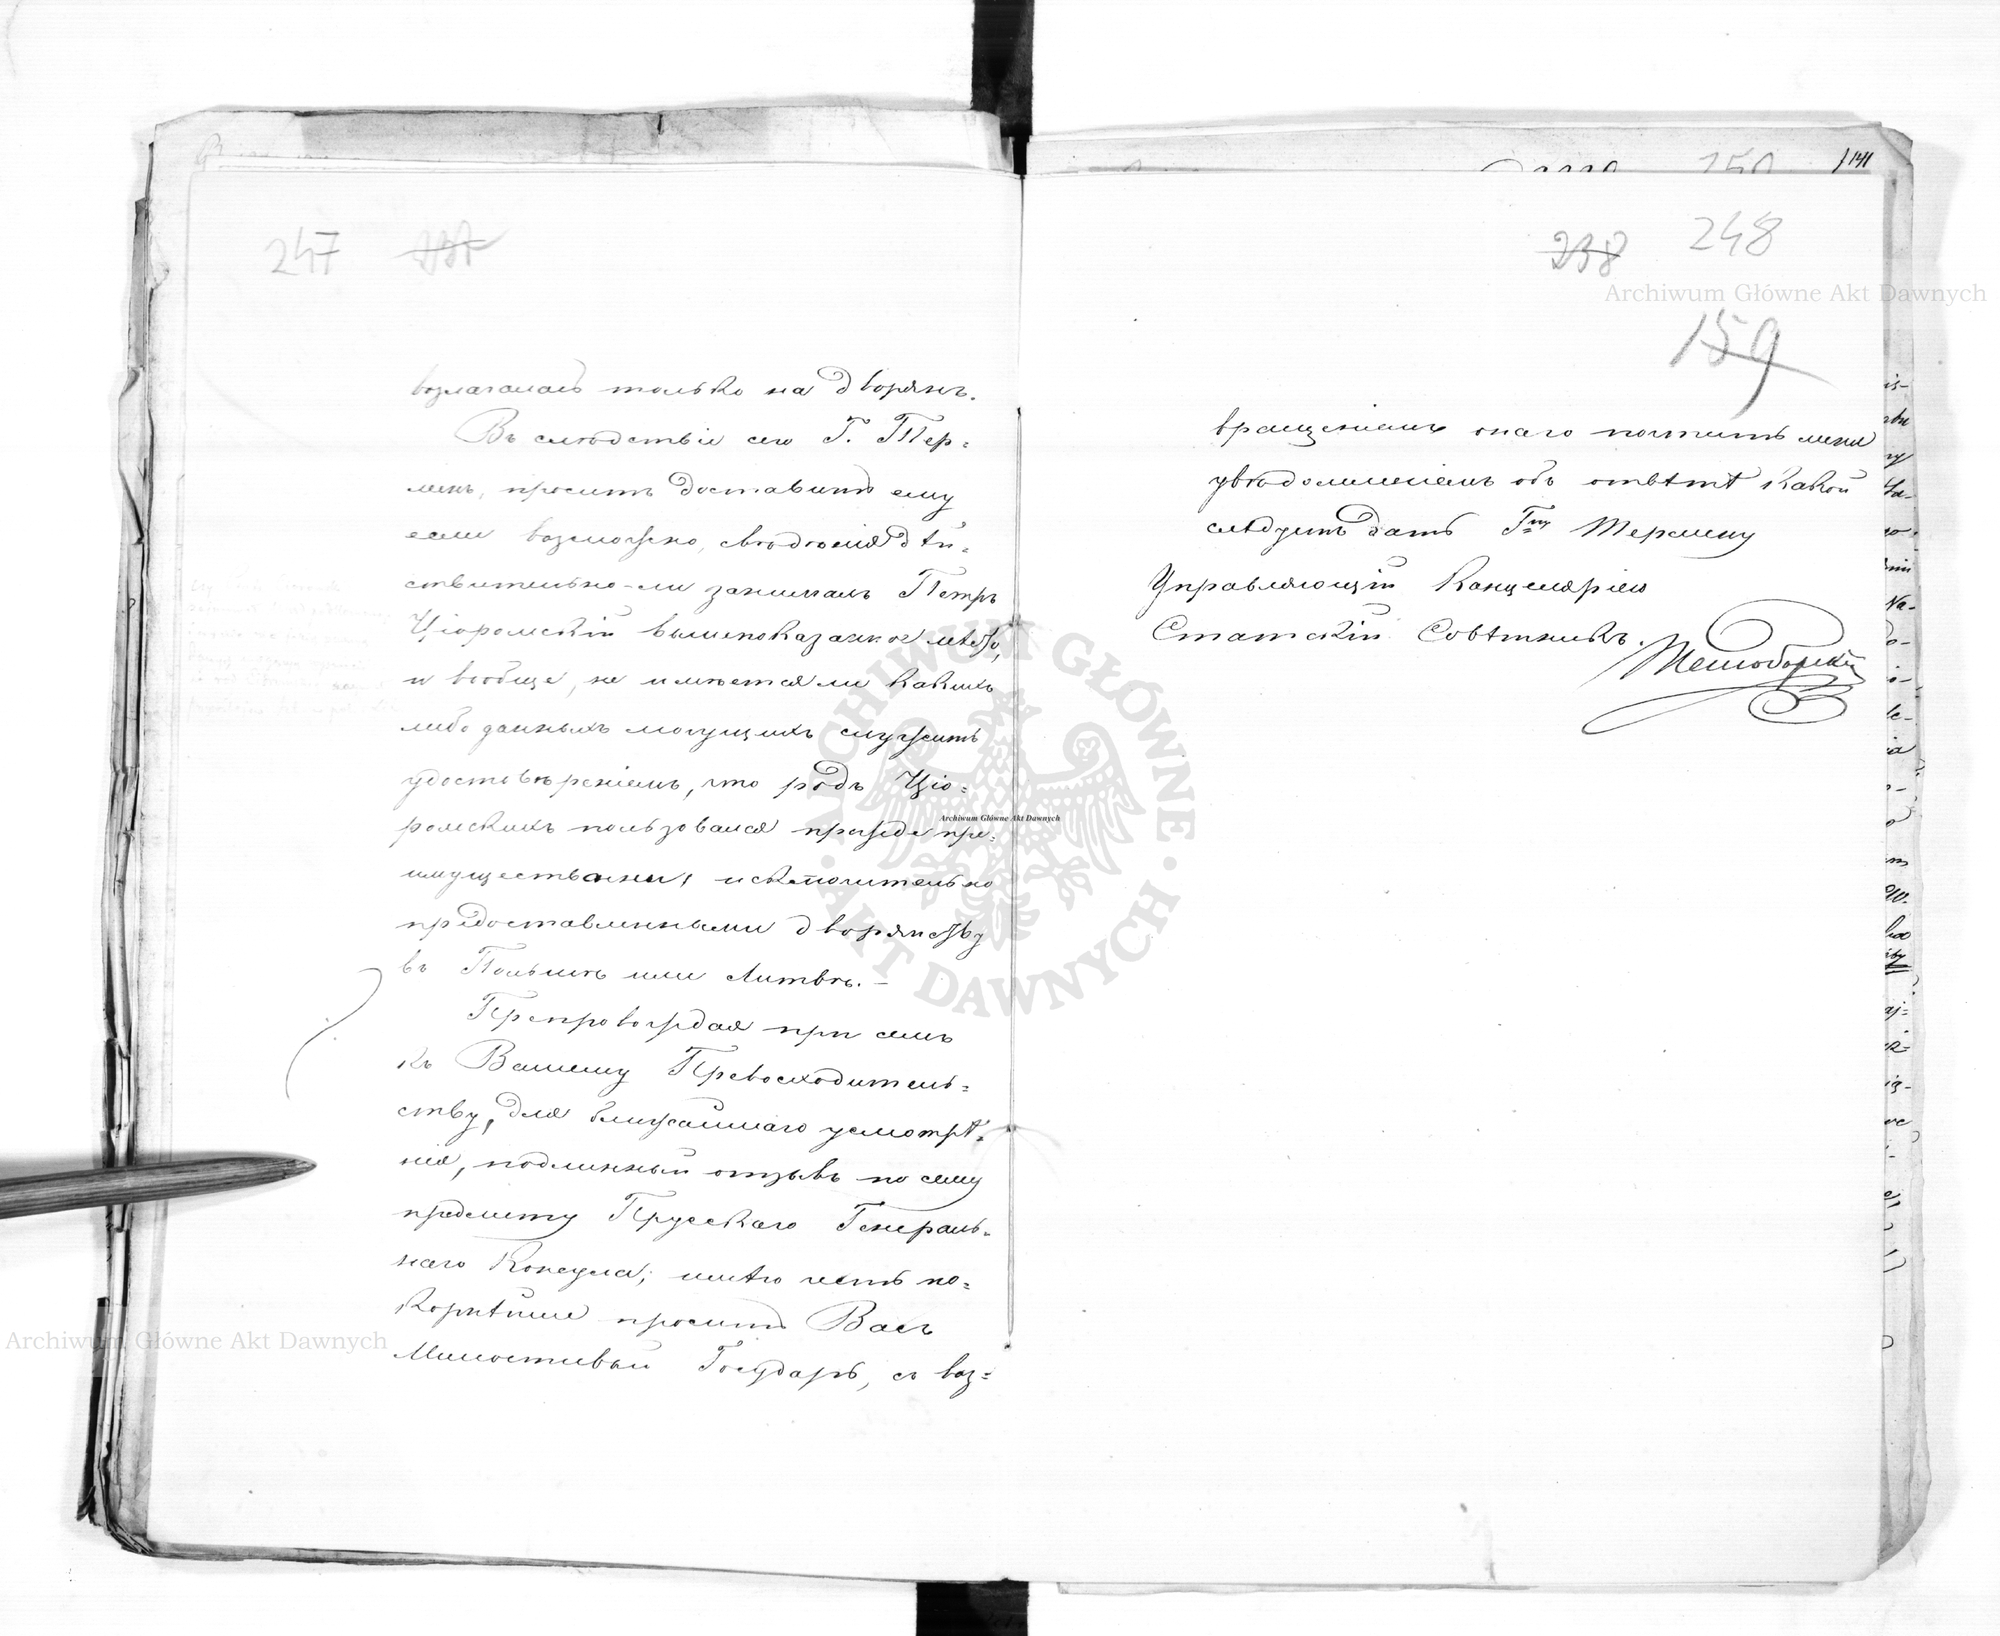 247 237
возлагалась только на дворянъ.
Въ слѣдствіе сего Г. Тер=
менъ, проситъ доставить ему
если возможно, свѣдѣнія дѣй-
ствительно-ли занималъ Петръ
Ціоромскій вышепоказанное мѣсто,
и вообще, не имѣется ли какихъ
либо данныхъ могущихъ служить
удостовѣреніемъ, что родъ Ціо=
ромскихъ пользовался прежде пре=
имуществами, исключительно
предоставленными дворянству
въ Польшѣ или Литвѣ. –
Препровождая при семъ
къ Вашему Превосходитель=
ству, для ближайшаго усмотрѣ=
нія, подлинный отзывъ по сему
предмету Прусскаго Генераль=
наго Консула; имѣю честь по=
корнѣйше просить Васъ
Милостивый Государь, съ воз=
141
238 248
159
вращеніемъ онаго почтить меня
увѣдомленіемъ объ отвѣтѣ какой
слѣдуетъ дать Гну Термену
Управляющій Канцеляріею
Статскій Совѣтникъ.
Archiwum Główne Akt Dawnych
Archiwum Główne Akt Dawnych
Archiwum Główne Akt Dawnych
ARCHIWUM GŁÓWNE
AKT DAWNYCH